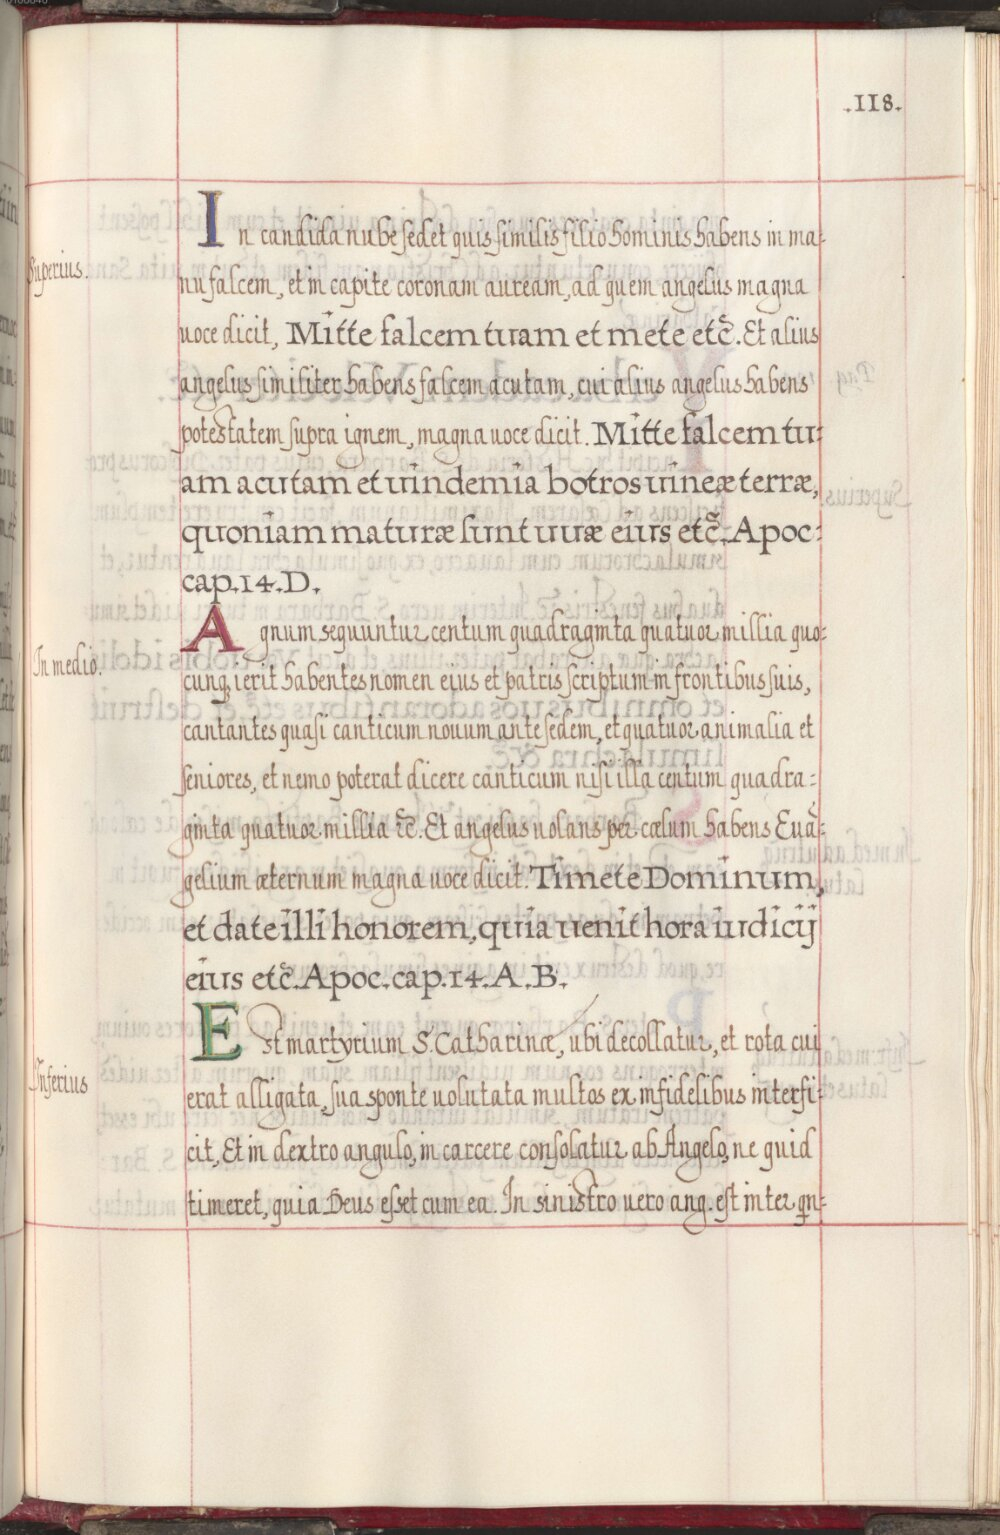 .118.
In candida nube sedet quis similis filio hominis habens in ma=
Superius.
nu falcem, et in capite coronam auream, ad quem angelus magna
uoce dicit, Mitte falcem tuam et mete etc̃. Et alius
angelus similiter habens falcem acutam, cui alius angelus habens
potestatem supra ignem, magna uoce dicit. Mitte falcem tu=
am acutam et uindemia botros uineæ terræ,
quoniam maturæ sunt uuæ eius etc̃. Apoc:
cap. 14. D.
Agnum sequuntur centum quadraginta quatuor millia quo=
In medio.
cunq̃ ierit habentes nomen eius et patris scriptum in frontibus suis,
cantantes quasi canticum nouum ante sedem, et quatuor animalia et
seniores, et nemo poterat dicere canticum nisi illa centum quadra=
ginta quatuor millia etc̃. Et angelus uolans per cælum habens Euã=
gelium æternum magna uoce dicit. Timete Dominum,
et date illi honorem, quia uenit hora iudicij
eius etc̃. Apoc. cap. 14. A. B.
Est martyrium S. Catharinæ, ubi decollatur, et rota cui
Inferius
erat alligata, sua sponte uolutata multos ex infidelibus interfi=
cit, Et in dextro angulo, in carcere consolatur ab Angelo, ne quid
timeret, quia Deus esset cum ea. In sinistro uero ang. est inter qn=